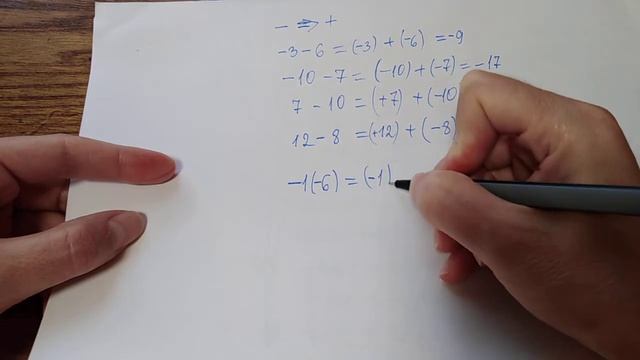 − ⇒ +
−3−6 = (−3) + (−6) = −9
−10 −7 = (−10) + (−7) = −17
7 − 10 = (+7) + (−10
12 − 8 = (+12) + (−8)
−1(−6) = (−1)